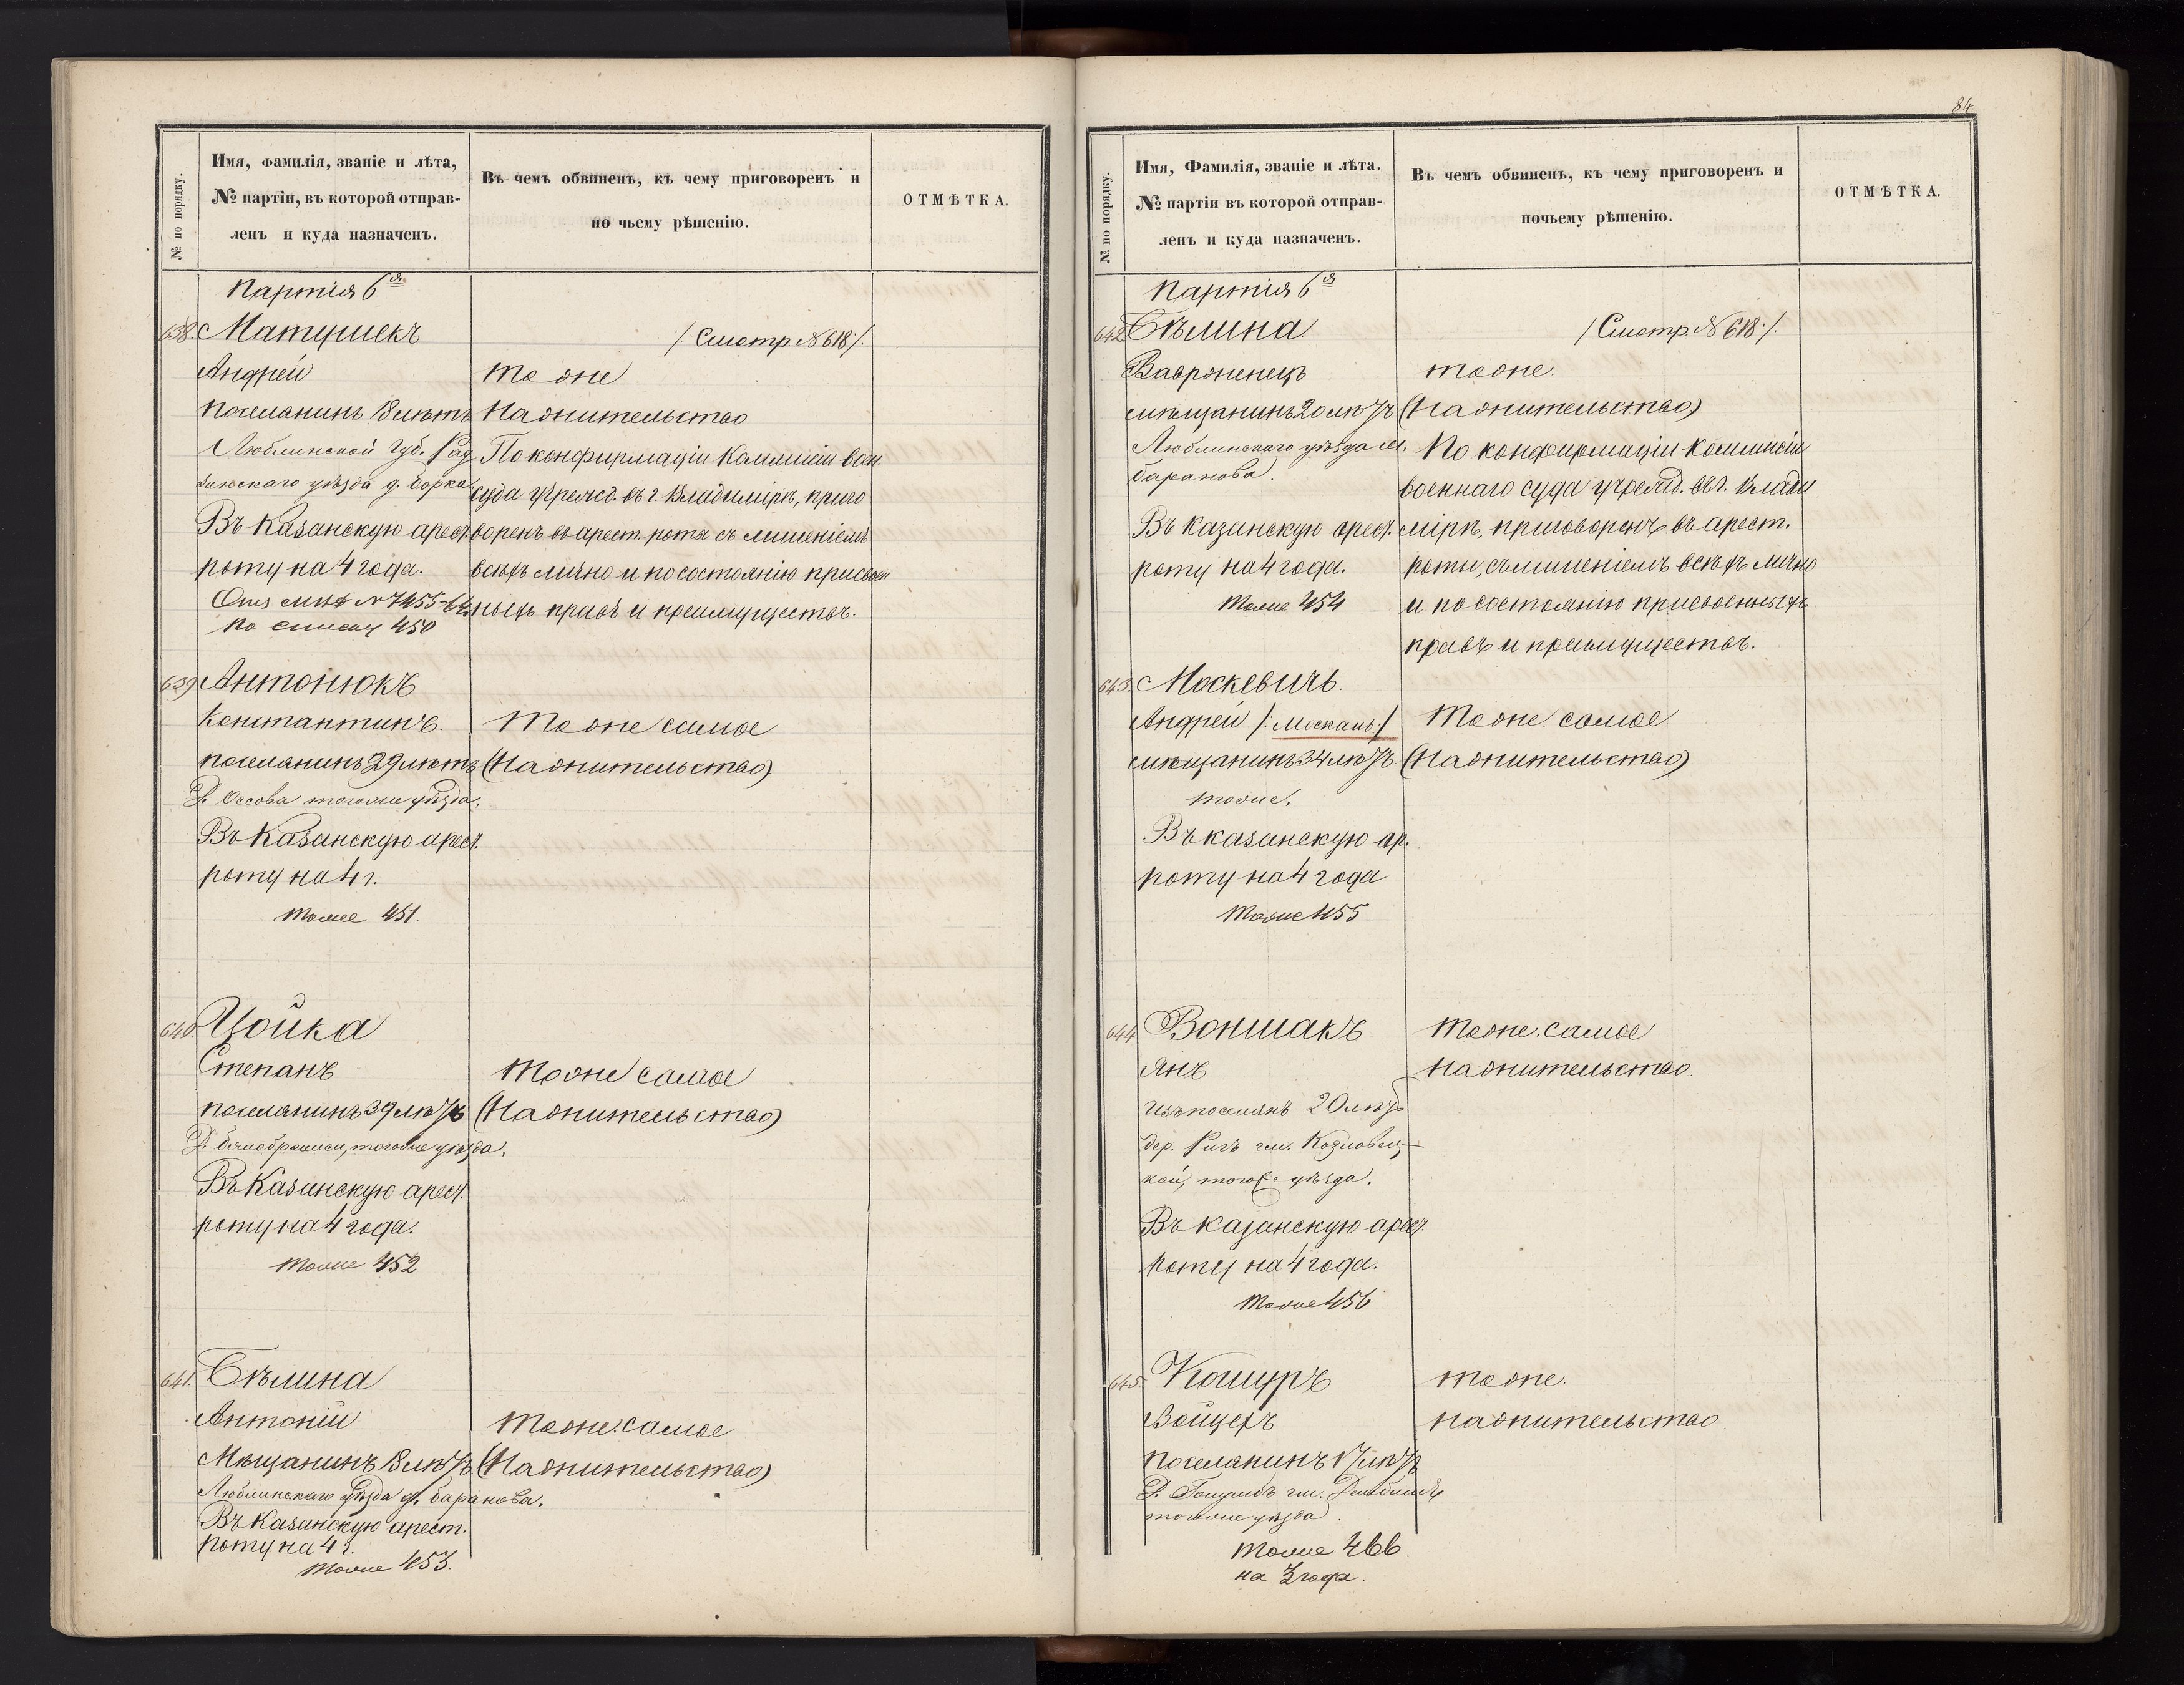 84.
№ по порядку.
Имя, фамилія, званіе и лѣта,
№ партіи, въ которой отправ-
ленъ и куда назначенъ.
Въ чемъ обвиненъ, къ чему приговоренъ и
по чьему рѣшенію.
ОТМѢТКА.
Партія 6я
638. Матушекъ
/Смотр. №618/.
Андрей
тоже
поселянинъ 18 лѣтъ
На жительство
Люблинской Губ. Рад
По конфирмаціи Коммисіи воен.
зинскаго уѣзда д. Борка
суда учрежд. въ г. Владимірѣ, приго
Въ Казанскую арест.
воренъ въ арест. роты съ лишеніемъ
роту на 4 года.
всѣхъ лично и по состоянію присвоен
№ 7455
ныхъ правъ и преимуществъ.
по списку 450
639. Антонюкъ
Константинъ.
Тоже самое
поселянинъ 29 лѣтъ
(На жительство)
Д. Оссова тогоже уѣзда.
Въ Казанскую арест.
роту на 4 г.
Тоже 451.
640. Цойка
Степанъ
Тоже самое
поселянинъ 39 лѣтъ
(На жительство)
Д. тогоже уѣзда.
Въ Казанскую арест.
роту на 4 года.
Тоже 452
641. Бѣлина
Антоній
Тоже самое
Мѣщанинъ 18 лѣтъ
(На жительство)
Люблинскаго уѣзда д. Баранова.
Въ Казанскую арест.
роту на 4 г.
Тоже 453.
№ по порядку.
Имя, Фамилія, званіе и лѣта.
№ партіи въ которой отправ-
ленъ и куда назначенъ.
Въ чемъ обвиненъ, къ чему приговоренъ и
почьему рѣшенію.
ОТМѢТКА.
Партія 6я
642. Бѣлина
/Смотр. №618/.
Вавроженецъ
тоже.
мѣщанинъ 20 лѣтъ
(На жительство)
Люблинскаго уѣзда м.
По конфирмаціи Коммисіи
Баранова.
военнаго суда учрежд. въ г. Влади
Въ Казанскую арест.
мірѣ, приговоренъ въ арест.
роту на 4 года.
роты, съ лишеніемъ всѣхъ лично
Тоже 454
и по состоянію присвоенныхъ
правъ и преимуществъ.
643. Москевичъ.
Андрей /:Москаль:/
Тоже самое
мѣщанинъ 34 лѣтъ.
(На жительство)
тоже.
Въ Казанскую ар.
роту на 4 года
Тоже 455
644 Воншакъ
Тоже самое
Янъ
на жительство.
Изъ поселянъ 20 лѣтъ
дер. Ригъ гм. Козловец-
кой, тогоже уѣзда.
Въ Казанскую арест.
роту на 4 года.
Тоже 456
645. Кошуръ
тоже.
Войцехъ
на жительство
поселянинъ 17 лѣтъ
Д. гм.
тогоже уѣзда.
Тоже 466.
на 3 года.